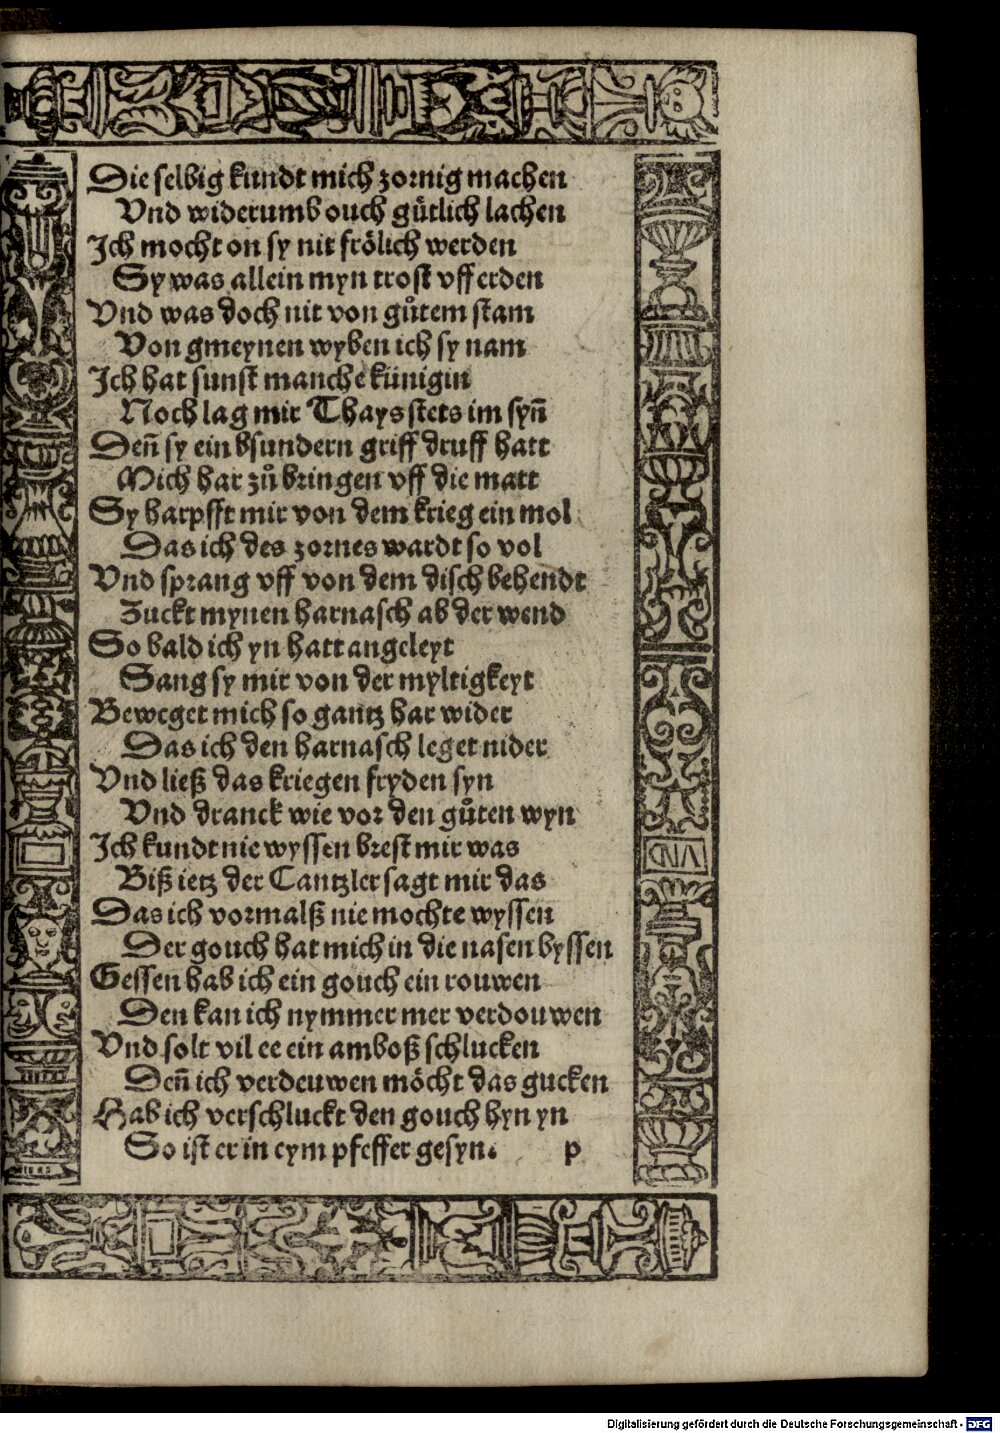 Die selbig kundt mich zornig machen
Vnd widerumb ouch gütlich lachen
Ich mocht on sy nit frölich werden
Sy was allein myn trost vff erden
Vnd was doch nit von gůtem stam
Von gmeynen wyben ich sy nam
Ich hat sunst manche künigin
Noch lag mir Thays stets im syn̄
Den̄ sy ein bsundern griff druff hatt
Mich har zů bringen vff die matt
Sy harpfft mir von dem krieg ein mol
Das ich des zornes wardt so vol
Vnd sprang vff von dem disch behendt
Zuckt mynen harnasch ab der wend
So bald ich yn hatt angeleyt
Sang sy mir von der myltigkeyt
Beweget mich so gantz har wider
Das ich den harnasch leget nider
Vnd ließ das kriegen fryden syn
Vnd dranck wie vor den gůten wyn
Ich kundt nie wyssen brest mir was
Biß ietz der Cantzler sagt mir das
Das ich vormalß nie mochte wyssen
Der gouch hat mich in die nasen byssen
Gessen hab ich ein gouch ein rouwen
Den kan ich nymmer mer verdouwen
Vnd solt vil ee ein amboß schlucken
Den̄ ich verdeuwen möcht das gucken
Hab ich verschluckt den gouch hyn yn
So ist er in eym pfeffer gesyn. p
Digitalisierung gefördert durch die Deutsche Forschungsgemeinschaft - DFG